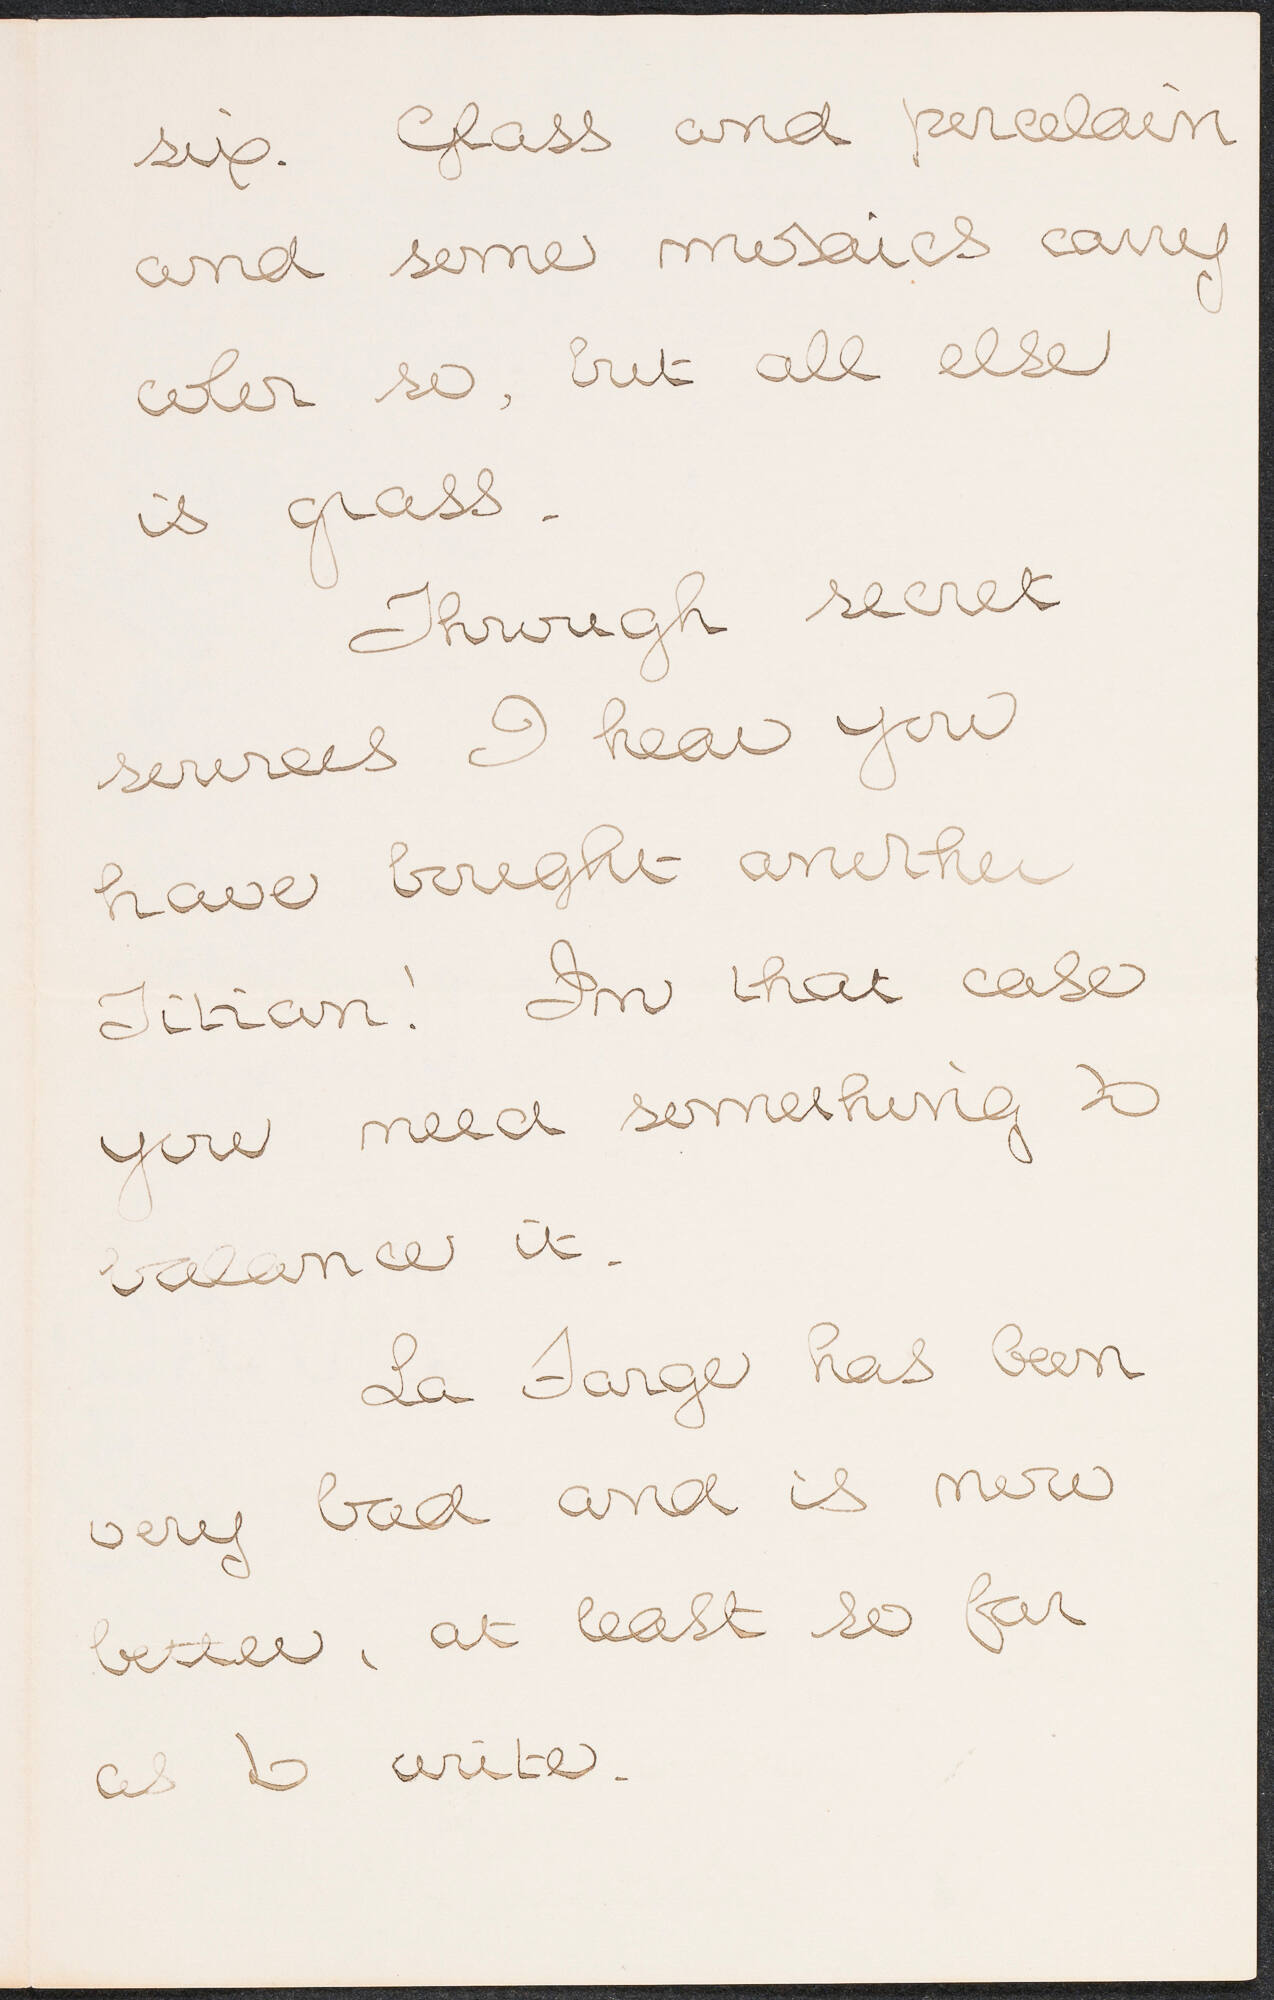 six. Glass and porcelain
and some mosaics carry
color so, but all else
is grass.
Through secret
sources I hear you
have bought another
Titian! In that case
you need something to
balance it.
La Farge has been
very bad and is now
better, at least so far
as to write.